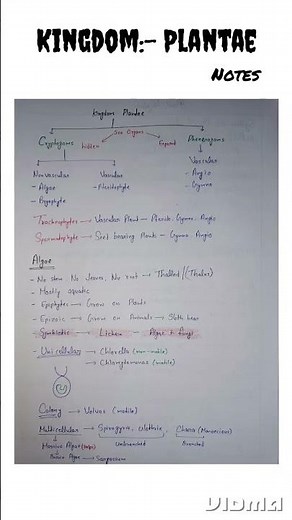 KINGDOM:- PLANTAE
NOTES
Kingdom Plantae
Sex Organs
Cryptogams Hidden Exposed Phanerogams
Nonvascular Vascular Vascular
- Algae - Pteridophyte - Angio
- Bryophyte - Gymno
Tracheophytes → Vascular Plant → Gymno, Angio
Spermatophyte → Seed bearing Plants - Gymno, Angio
Algae
- No stem No leaves, No root → Thalloid // (Thallus)
- Mostly aquatic
- Epiphytic → Grow on Plants
- Epizoic → Grow on Animals → Sloth bear
- Symbiotic → Lichen → Algae + Fungi
- Unicellular → Chlorella (non-motile)
→ Chlamydomonas (motile)
Colony → Volvox (motile)
Multicellular → Spirogyra, Ulothrix, Chara
Massive Algae Unbranched Branched
Sargassum
VIDMA